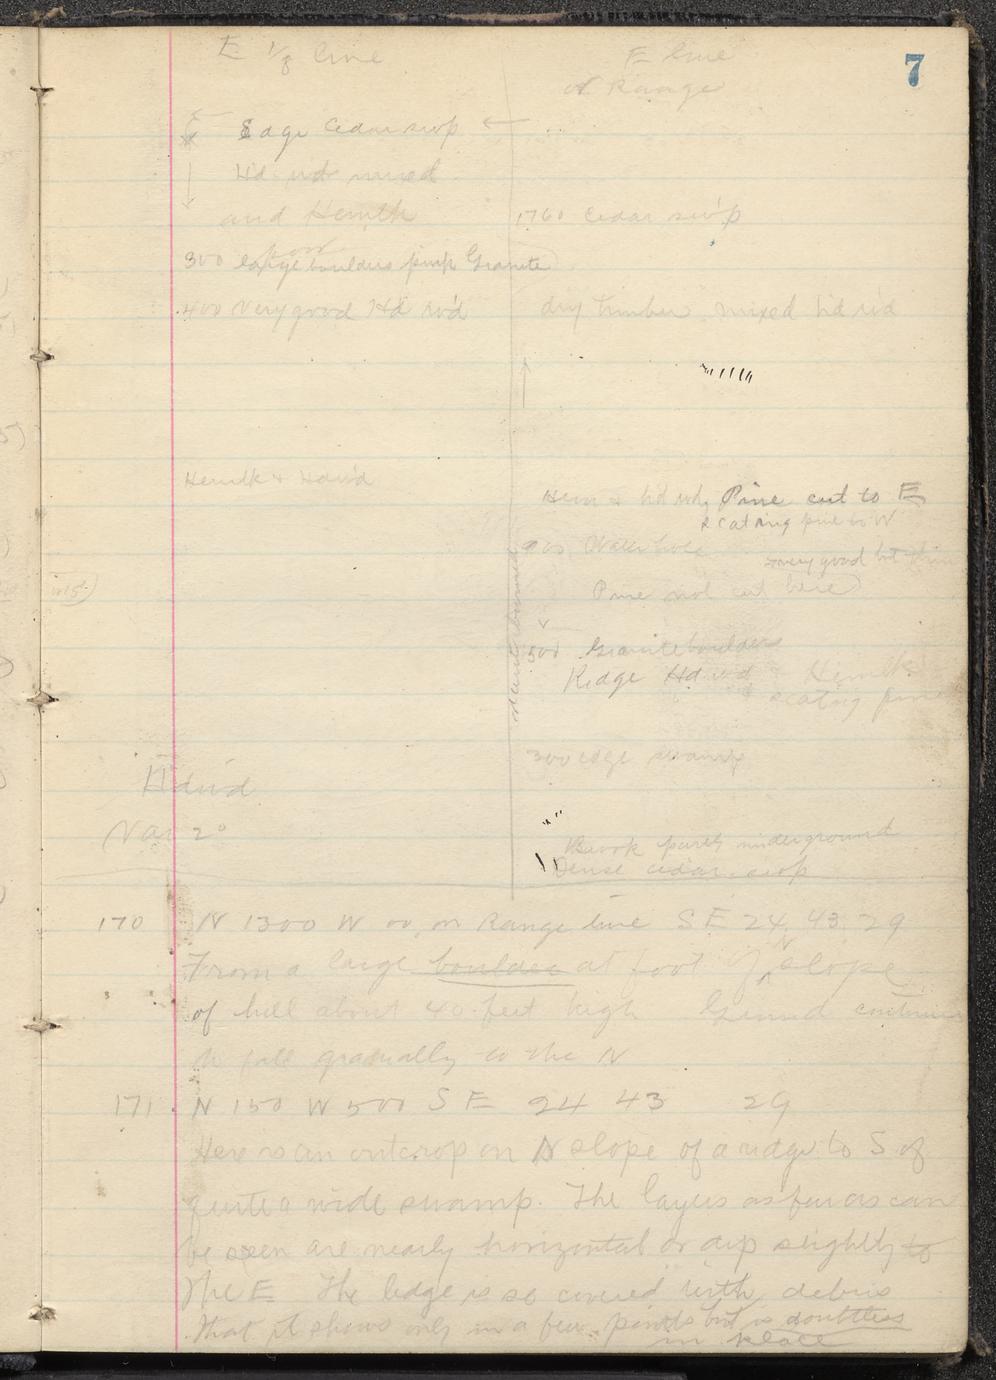 7
E 1/8 line
E line
of Range
Edge Cedar swp ←
Hd wd mixed
and Hemlk
1760 Cedar sw'p
300 large boulders pink Granite
400 Very good Hd w'd
dry timber mixed h'd w'd
Hemlk & Hdw'd
Hem & h'd wd, Pine cut to E
scatring pine to W
900 Water hole
very good but
Pine not cut here
500 Granite boulders
Ridge Hd wd & Hemlk
scatring pine
300 edge swamp
Hdw'd
Var 2°
Brook partly underground
Dense cedar swp
170 N 1300 W 00, on Range line SE 24, 43, 29
From a large boulder at foot of N slope
of hill about 40 feet high Ground continues
to fall gradually to the N
171. N 150 W 500 SE 24 43 29
Here is an outcrop on N slope of a ridge to S of
quite a wide swamp. The layers as far as can
be seen are nearly horizontal or dip slightly to
the E The ledge is so covered with debris
that it shows only in a few points but is doubtless
in place